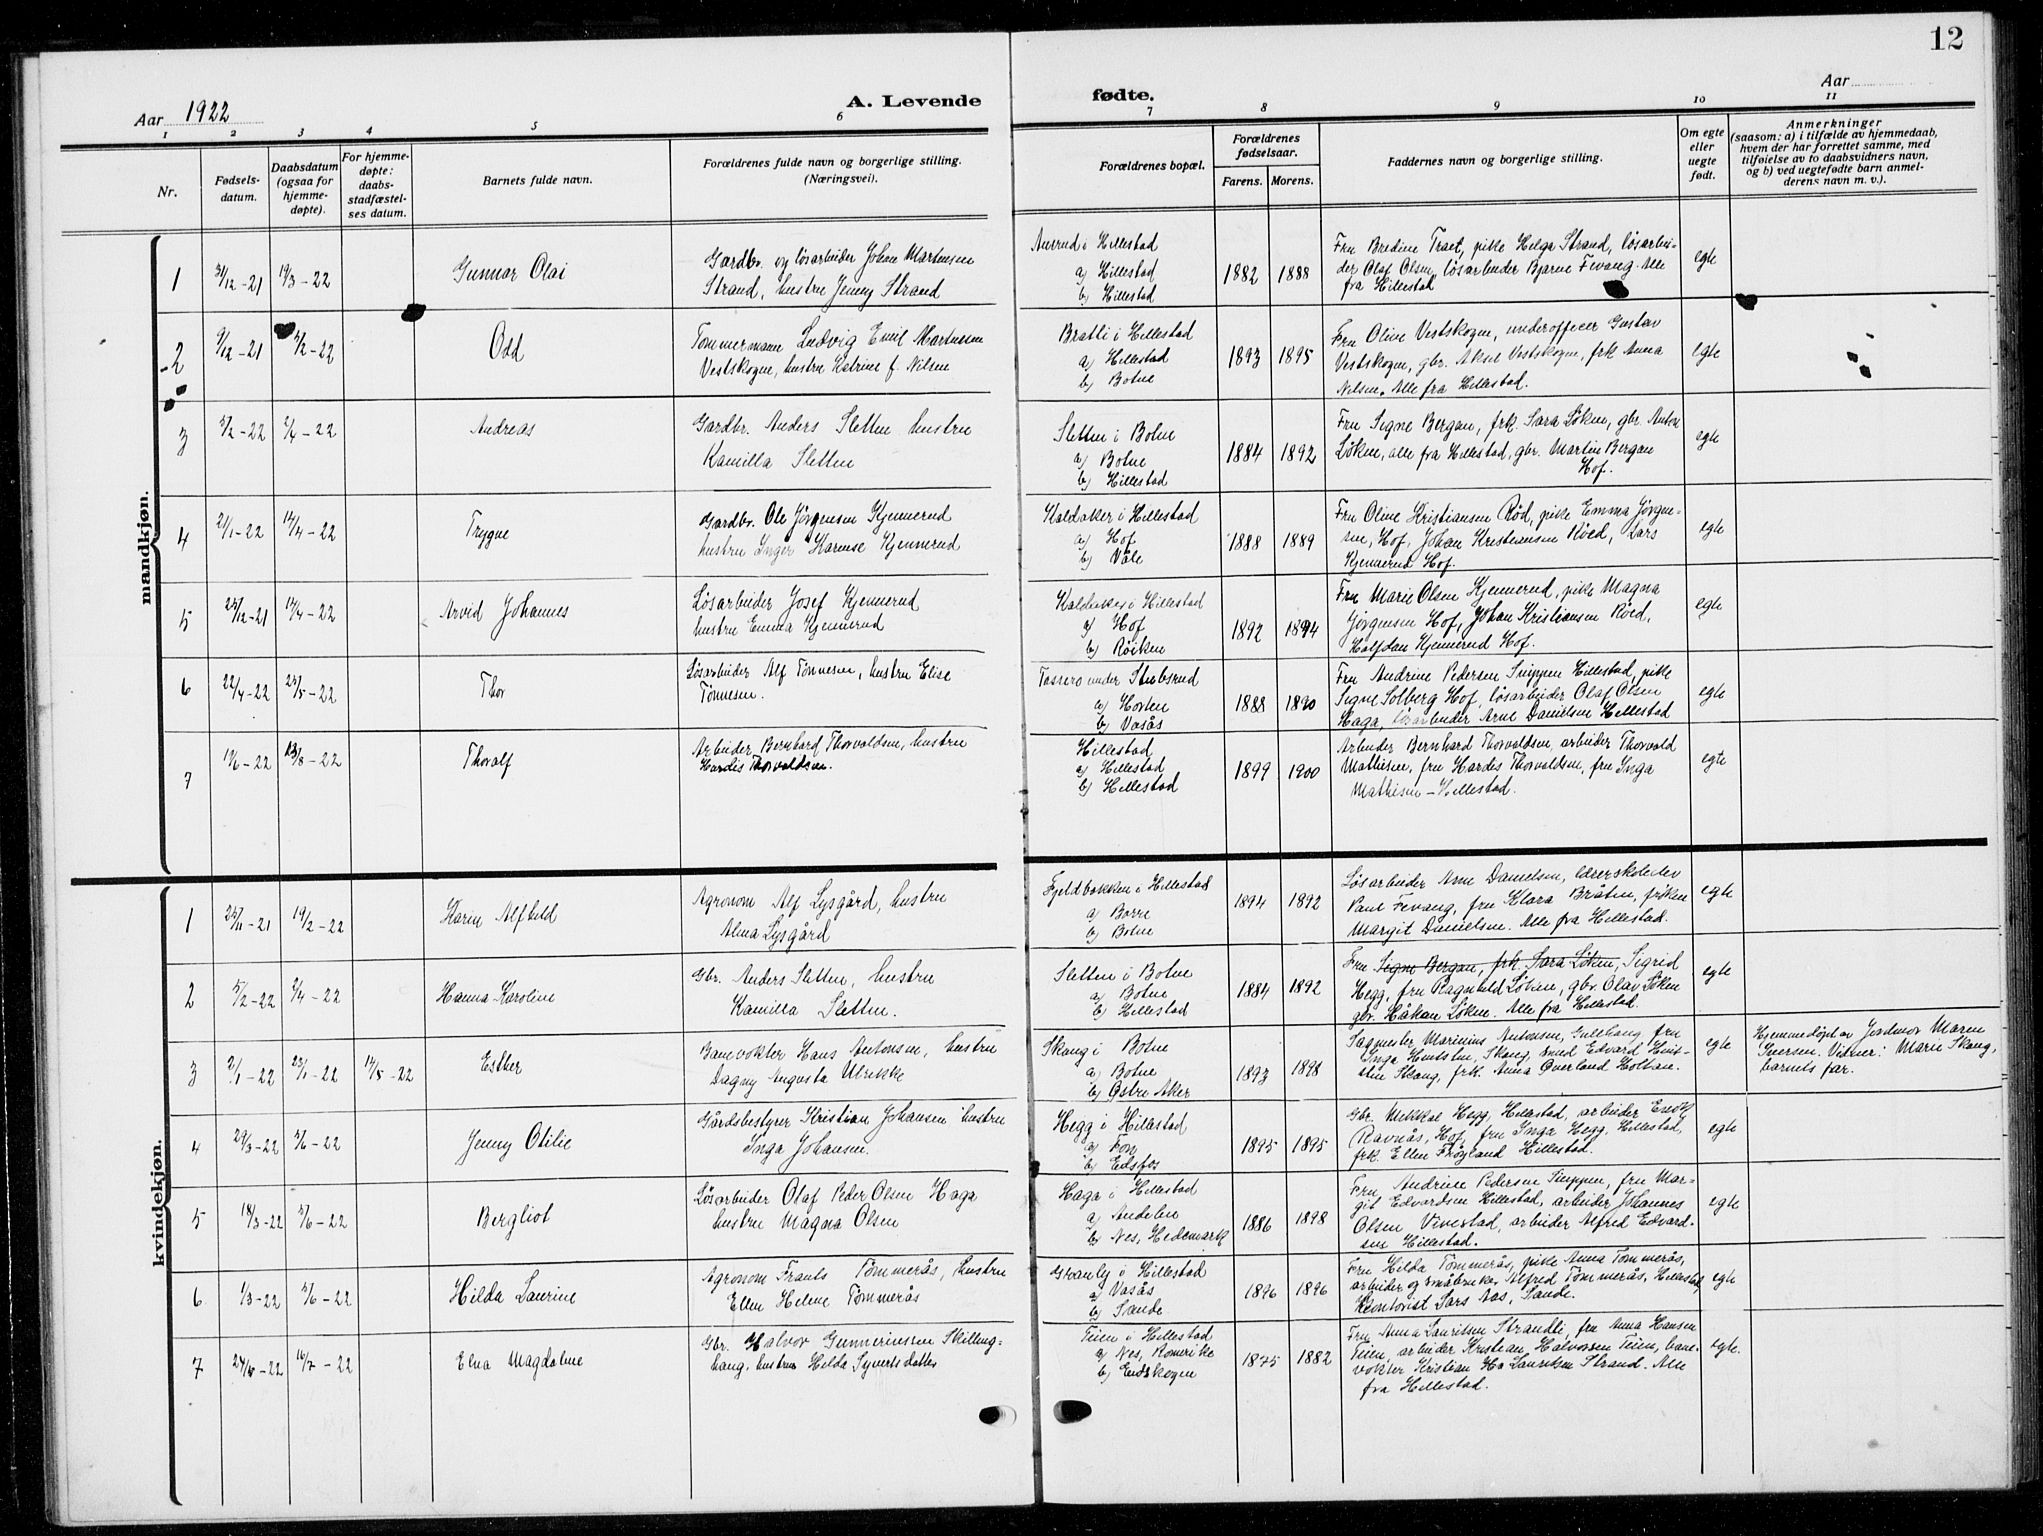 12
Aar 1922
A. Levende
fødte.
Aar
1 2 3 4 5 6 7 8 9 10 11
Nr.
Fødsels-
datum.
Daabsdatum
(ogsaa for
hjemme-
døpte).
For hjemme-
døpte:
daabs-
stadfæstel-
ses datum.
Barnets fulde navn.
Forældrenes fulde navn og borgerlige stilling.
(Næringsvei).
Forældrenes bopæl.
Forældrenes
fødselsaar.
Farens. Morens.
Faddernes navn og borgerlige stilling.
Om egte
eller
uegte
født.
Anmerkninger
(saasom: a) i tilfælde av hjemmedaab,
hvem der har forrettet samme, med
tilføielse av to daabsvidners navn,
og b) ved uegtefødte barn anmel-
derens navn m. v.).
mandkjøn.
1 31/12-21 19/3-22 Gunnar Olai
Gardbr. og løsarbeider Johan Martinsen
Strand, hustru Jenny Strand
i Hillestad
a) Hillestad
b) Hillestad
1882 1888
Fru Bredine Traet, pike Helga Strand, løsarbei-
der Olaf Olsen, løsarbeider Bjarne Fevang. Alle
fra Hillestad
egte
2 9/12-21 /2-22 Odd
Tømmermann Ludvig Emil Martinsen
Vestskogen, hustru Katrine f. Nilsen
Bratli i Hillestad
a) Hillestad
b) Botne
1893 1895
Fru Olive Vestskogen, underofficer Gustav
Vestskogen, gbr. Aksel Vestskogen, frk Anna
Nilsen. Alle fra Hillestad.
egte
3 5/2-22 2/4-22 Andreas
Gardbr. Anders Sletten hustru
Kamilla Sletten
Sletten i Botne
a) Botne
b) Hillestad
1884 1892
Fru Signe Bergan, frk. Sara Løken, gbr. Anton
Løken, alle fra Hillestad, gbr. Martin Bergan
Hof.
egte
4 21/1-22 17/4-22 Trygve
Gardbr. Ole Jørgensen Kjennerud
hustru Inger Karense Kjennerud
Kaldaker i Hillestad
a) Hof
b) Våle
1888 1889
Fru Oline Kristiansen Rød, pike Emma Jørgen-
sen, Hof, Johan Kristiansen Røed, Lars
Kjennerud Hof.
egte
5 25/12-21 17/4-22 Arvid Johannes
Løsarbeider Josef Kjennerud
hustru Emma Kjennerud
Kaldaker i Hillestad
a) Hof
b) Røiken
1892 1894
Fru Marie Olsen Kjennerud, pike Magna
Jørgensen Hof, Johan Kristiansen Røed,
Halfdan Kjennerud Hof.
egte
6 22/4-22 25/5-22 Thor
Løsarbeider Alf Tønnesen, hustru Elise
Tønnesen.
under Stubsrud
a) Horten
b) Vasås
1888 1890
Fru Andrine Pedersen Snippen Hillestad, pike
Signe Solberg Hof, løsarbeider Olaf Olsen
Haga, løsarbeider Arne Danielsen Hillestad
egte
7 19/6-22 13/8-22 Thoralf
Arbeider Bernhard Thorvaldsen, hustru
Hardis Thorvaldsen.
Hillestad
a) Hillestad
b) Hillestad
1899 1900
Arbeider Bernhard Thorvaldsen, arbeider Thorvald
Mathisen, fru Hardis Thorvaldsen, fru Inga
Mathisen - Hillestad.
egte
kvindekjøn.
1 25/11-21 19/2-22 Karin Alfhild
Agronom Alf Lysgård, hustru
Alma Lysgård
Fjeldbakken i Hillestad
a) Borre
b) Botne
1894 1892
Løsarbeider Arne Danielsen, lærerskoleelev
Paul Fevang, fru Klara Bråten, frøken
Margit Danielsen. Alle fra Hillestad.
egte
2 5/2-22 2/4-22 Hanna Karoline
Gbr. Anders Sletten, hustru
Kamilla Sletten.
Sletten i Botne
a) Botne
b) Hillestad
1884 1892
Fru Signe Bergan, frk. Sara Løken, Sigrid
Hegg, fru Ragnhild Løken, gbr Olav Løken
gbr. Håkan Løken. Alle fra Hillestad.
egte
3 2/1-22 23/1-22 14/5-22 Esther
Banevokter Hans Antonsen, hustru
Dagny Augusta Ulrikke
Skaug i Botne
a) Botne
b) Østre Aker
1893 1898
Sagmester Marinius Antonsen, Gullhaug, fru
Inga Knutsen, Skaug, smed Edvard Knut-
sen Skaug, frk. Anna Øverland Holtan.
egte
Hjemmedøpt av Jordmor Maren
Iversen. Vitner: Marie Skaug,
barnets far.
4 29/3-22 5/6-22 Jenny Otilie
Gårdsbestyrer Kristian Johansen hustru
Inga Johansen.
Hegg i Hillestad
a) Fon
b) Eidsfos
1895 1895
Gbr. Mikkal Hegg, Hillestad, arbeider Enok
Ravnås, Hof, fru Inga Hegg, Hillestad,
frk. Ellen Frøyland Hillestad.
egte
5 18/3-22 5/6-22 Bergliot
Løsarbeider Olaf Peder Olsen Haga
hustru Magna Olsen
Haga i Hillestad
a) Andebu
b) Nes, Hedemark
1886 1898
Fru Andrine Pedersen Snippen, fru Mar-
git Edvardsen Hillestad, arbeider Johannes
Olsen Vivestad, arbeider Alfred Edvard-
sen Hillestad.
egte
6 1/3-22 5/6-22 Hilda Laurine
Agronom Frants Tømmerås, hustru
Ellen Helene Tømmerås
Granly i Hillestad
a) Vasås
b) Sande
1896 1896
Fru Hilda Tømmerås, pike Anna Tømmerås,
arbeider og småbruker Alfred Tømmerås, Hillestad,
Kontorist Lars Aas, Sande.
egte
7 24/6-22 16/7-22 Elna Magdalene
Gbr. Halvor Gunneriussen Skilling-
haug, hustru Hilda Syvertsdatter
Teien i Hillestad
a) Nes, Romerike
b) Eidskogen
1875 1882
Fru Anna Lauritsen Strandli, fru Anna Hansen
Teien, arbeider Kristian Halvorsen Teien, bane-
vokter Kristian Lauritsen Strand. Alle
fra Hillestad.
egte.